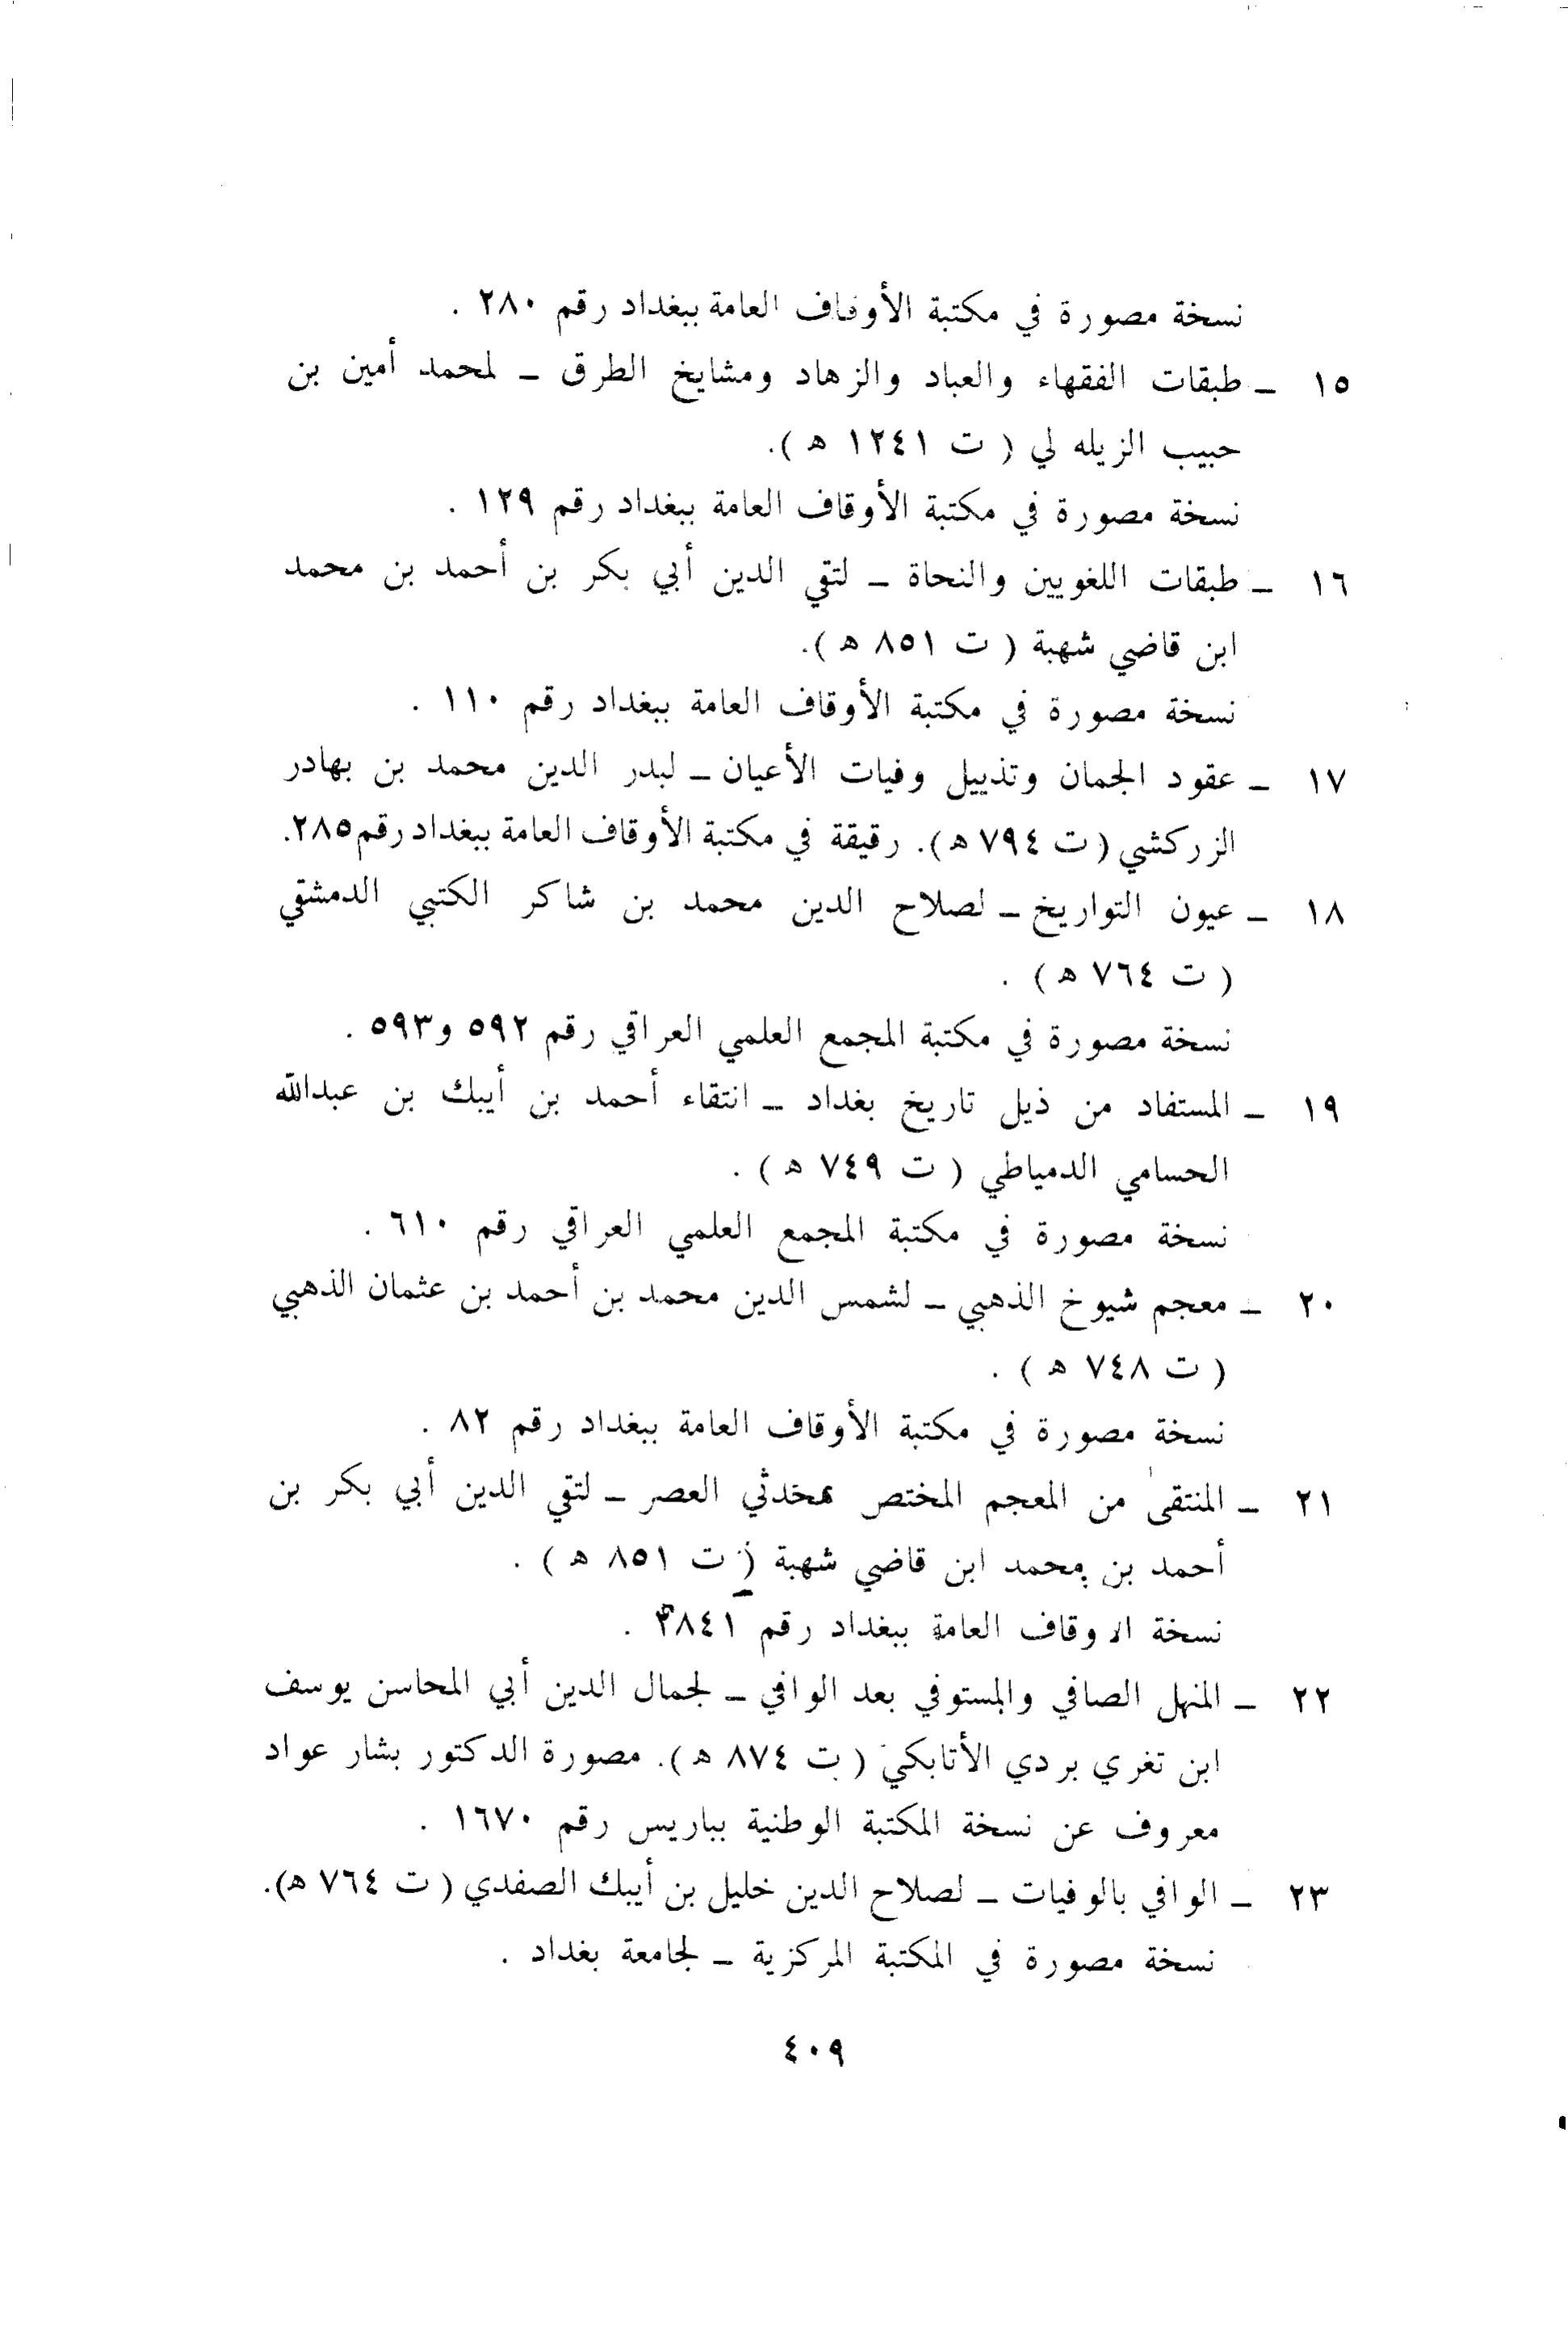 نسخة مصورة في مكتبة الأوقاف العامة ببغداد رقم ٢٨٠ .
١٥ ـ طبقات الفقهاء والعباد والزهاد ومشايخ الطرق ـ لمحمد أمين بن
حبيب الزيله لي ( ت ١٢٤١ ه ).
نسخة مصورة في مكتبة الأوقاف العامة ببغداد رقم ١٢٩ .
١٦ ـ طبقات اللغويين والنحاة ـ لتقي الدين أبي بكر بن أحمد بن محمد
ابن قاضي شهبة ( ت ٨٥١ ه ).
نسخة مصورة في مكتبة الأوقاف العامة ببغداد رقم ١١٠ .
١٧ ـ عقود الجمان وتذييل وفيات الأعيان ـ لبدر الدين محمد بن بهادر
الزركشي ( ت ٧٩٤ ه ). رقيقة في مكتبة الأوقاف العامة ببغداد رقم ٢٨٥.
١٨ ـ عيون التواريخ ـ لصلاح الدين محمد بن شاكر الكتبي الدمشقي
( ت ٧٦٤ ه ) .
نسخة مصورة في مكتبة المجمع العلمي العراقي رقم ٥٩٢ و٥٩٣ .
١٩ ـ المستفاد من ذيل تاريخ بغداد ـ انتقاء أحمد بن أيبك بن عبدالله
الحسامي الدمياطي ( ت ٧٤٩ ه ) .
نسخة مصورة في مكتبة المجمع العلمي العراقي رقم ٦١٠ .
٢٠ ـ معجم شيوخ الذهبي ـ لشمس الدين محمد بن أحمد بن عثمان الذهبي
( ت ٧٤٨ ه ) .
نسخة مصورة في مكتبة الأوقاف العامة ببغداد رقم ٨٢ .
٢١ ـ المنتقى من المعجم المختص بمحدثي العصر ـ لتقي الدين أبي بكر بن
أحمد بن محمد ابن قاضي شهبة ( ت ٨٥١ ه ) .
نسخة الاوقاف العامة ببغداد رقم ٣٨٤١ .
٢٢ ـ المنهل الصافي والمستوفي بعد الوافي ـ لجمال الدين أبي المحاسن يوسف
ابن تغري بردي الأتابكي ( ت ٨٧٤ ه ). مصورة الدكتور بشار عواد
معروف عن نسخة المكتبة الوطنية بباريس رقم ١٦٧٠ .
٢٣ ـ الوافي بالوفيات ـ لصلاح الدين خليل بن أيبك الصفدي ( ت ٧٦٤ ه).
نسخة مصورة في المكتبة المركزية ـ لجامعة بغداد .
٤٠٩